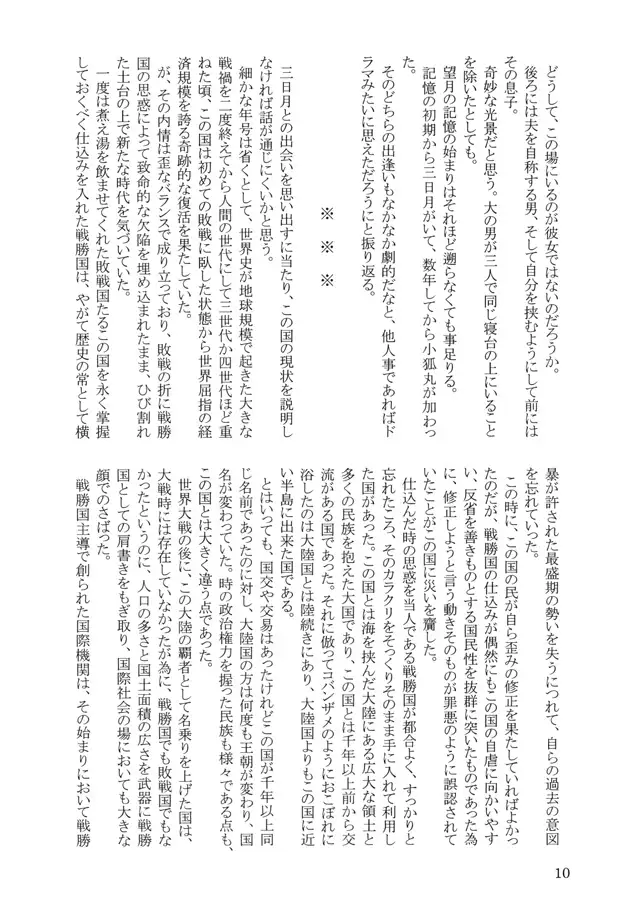 どうして、この場にいるのが彼女ではないのだろうか。
後ろには夫を自称する男、そして自分を挟むようにして前には
その息子。
奇妙な光景だと思う。大の男が三人で同じ寝台の上にいること
を除いたとしても。
望月の記憶の始まりはそれほど遡らなくても事足りる。
記憶の初期から三日月がいて、数年してから小狐丸が加わっ
た。
そのどちらの出逢いもなかなか劇的だなと、他人事であればド
ラマみたいに思えただろうにと振り返る。
※ ※ ※
三日月との出会いを思い出すに当たり、この国の現状を説明し
なければ話が通じにくいかと思う。
細かな年号は省くとして、世界史が地球規模で起きた大きな
戦禍を二度終えてから人間の世代にして三世代か四世代ほど重
ねた頃、この国は初めての敗戦に臥した状態から世界屈指の経
済規模を誇る奇跡的な復活を果たしていた。
が、その内情は歪なバランスで成り立っており、敗戦の折に戦勝
国の思惑によって致命的な欠陥を埋め込まれたまま、ひび割れ
た土台の上で新たな時代を気づいていた。
一度は煮え湯を飲ませてくれた敗戦国たるこの国を永く掌握
しておくべく仕込みを入れた戦勝国は、やがて歴史の常として横
暴が許された最盛期の勢いを失うにつれて、自らの過去の意図
を忘れていった。
この時に、この国の民が自ら歪みの修正を果たしていればよかっ
たのだが、戦勝国の仕込みが偶然にもこの国の自虐に向かいやす
い、反省を善きものとする国民性を抜群に突いたものであった為
に、修正しようと言う動きそのものが罪悪のように誤認されて
いたことがこの国に災いを齎した。
仕込んだ時の思惑を当人である戦勝国が都合よく、すっかりと
忘れたころ、そのカラクリをそっくりそのまま手に入れて利用し
た国があった。この国とは海を挟んだ大陸にある広大な領土と
多くの民族を抱えた大国であり、この国とは千年以上前から交
流がある国であった。それに倣ってコバンザメのようにおこぼれに
浴したのは大陸国とは陸続きにあり、大陸国よりもこの国に近
い半島に出来た国である。
とはいっても、国交や交易はあったけれどこの国が千年以上同
じ名前であったのに対し、大陸国の方は何度も王朝が変わり、国
名が変わっていた。時の政治権力を握った民族も様々である点も、
この国とは大きく違う点であった。
世界大戦の後に、この大陸の覇者として名乗りを上げた国は、
大戦時には存在していなかったが為に、戦勝国でも敗戦国でもな
かったというのに、人口の多さと国土面積の広さを武器に戦勝
国としての肩書きをもぎ取り、国際社会の場においても大きな
顔でのさばった。
戦勝国主導で創られた国際機関は、その始まりにおいて戦勝
10